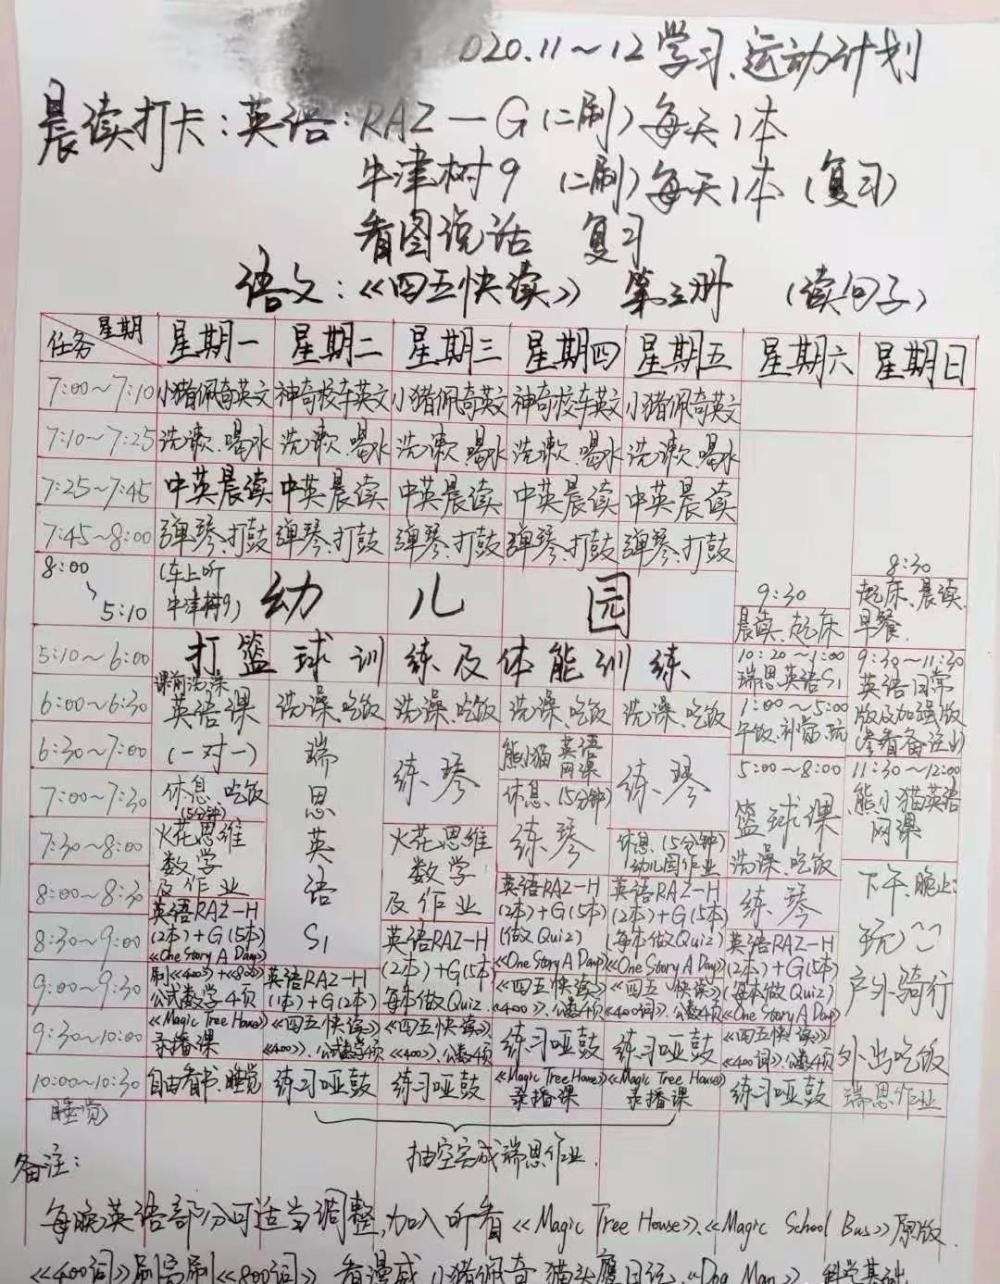 020.11～12 学习、运动计划
晨读打卡：英语：RAZ－G（二刷）每天1本
牛津树9 （二刷）每天1本（复习）
看图说话 复习
语文：《四五快读》 第三册 （读句子）
任务 星期 星期一 星期二 星期三 星期四 星期五 星期六 星期日
7:00～7:10 小猪佩奇英文 神奇校车英文 小猪佩奇英文 神奇校车英文 小猪佩奇英文
7:10～7:25 洗漱、喝水 洗漱、喝水 洗漱、喝水 洗漱、喝水 洗漱、喝水
7:25～7:45 中英晨读 中英晨读 中英晨读 中英晨读 中英晨读
7:45～8:00 弹琴、打鼓 弹琴、打鼓 弹琴、打鼓 弹琴、打鼓 弹琴、打鼓
8:00～5:10 （车上听牛津树9） 幼儿园
9:30
晨读、起床
8:30
起床、晨读、
早餐.
5:10～6:00 打篮球训练及体能训练
10:20～1:00
瑞思英语S1
9:30～11:30
英语日常
版及加强版
（参看备注）
6:00～6:30
课前洗澡
英语课
（一对一）
洗澡、吃饭 洗澡、吃饭 洗澡、吃饭 洗澡、吃饭
1:00～5:00
午饭、补觉、玩
6:30～7:00
瑞思英语S1
练琴
熊小猫英语
网课
练琴
5:00～8:00
篮球课
洗澡、吃饭
11:30～12:00
熊小猫英语
网课
7:00～7:30
休息、吃饭
（5分钟）
休息（5分钟）
7:30～8:00
火花思维
数学
及作业
火花思维
数学
及作业
练琴
休息（5分钟）
幼儿园作业
下午、晚上：
玩～
户外骑行
外出吃饭
8:00～8:30
英语RAZ－H
（2本）＋G（5本）
《One Story A Day》
英语RAZ－H
（2本）＋G（5本）
（做Quiz）
《One Story A Day》
英语RAZ－H
（2本）＋G（5本）
（每本做Quiz）
《One Story A Day》
练琴
8:30～9:00
英语RAZ－H
（2本）＋G（5本
每本做Quiz
英语RAZ－H
（2本）＋G（5本
（每本做Quiz）
《One Story A Day》
9:00～9:30
刷《400》＋《800》
公式数学4页
英语RAZ－H
（1本）＋G（2本）
《四五快读》
《400》、公数4页
《四五快读》
《400词》、公数4页
9:30～10:00
《Magic Tree House》
录播课
《四五快读》
《400》、公式数学4页
《四五快读》
《400》、公数4页
练习哑鼓 练习哑鼓
《四五快读》
《400词》、公数4页
10:00～10:30 自由看书、睡觉 练习哑鼓 练习哑鼓
《Magic Tree House》
录播课
《Magic Tree House》
录播课
练习哑鼓 瑞思作业
睡觉
抽空完成瑞思作业.
备注：
每晚英语部分可适当调整，加入听看《Magic Tree House》、《Magic School Bus》原版.
《400词》刷完刷《800词》 看漫威、小猪佩奇、猫头鹰日记、《Dog Man》、科学基础